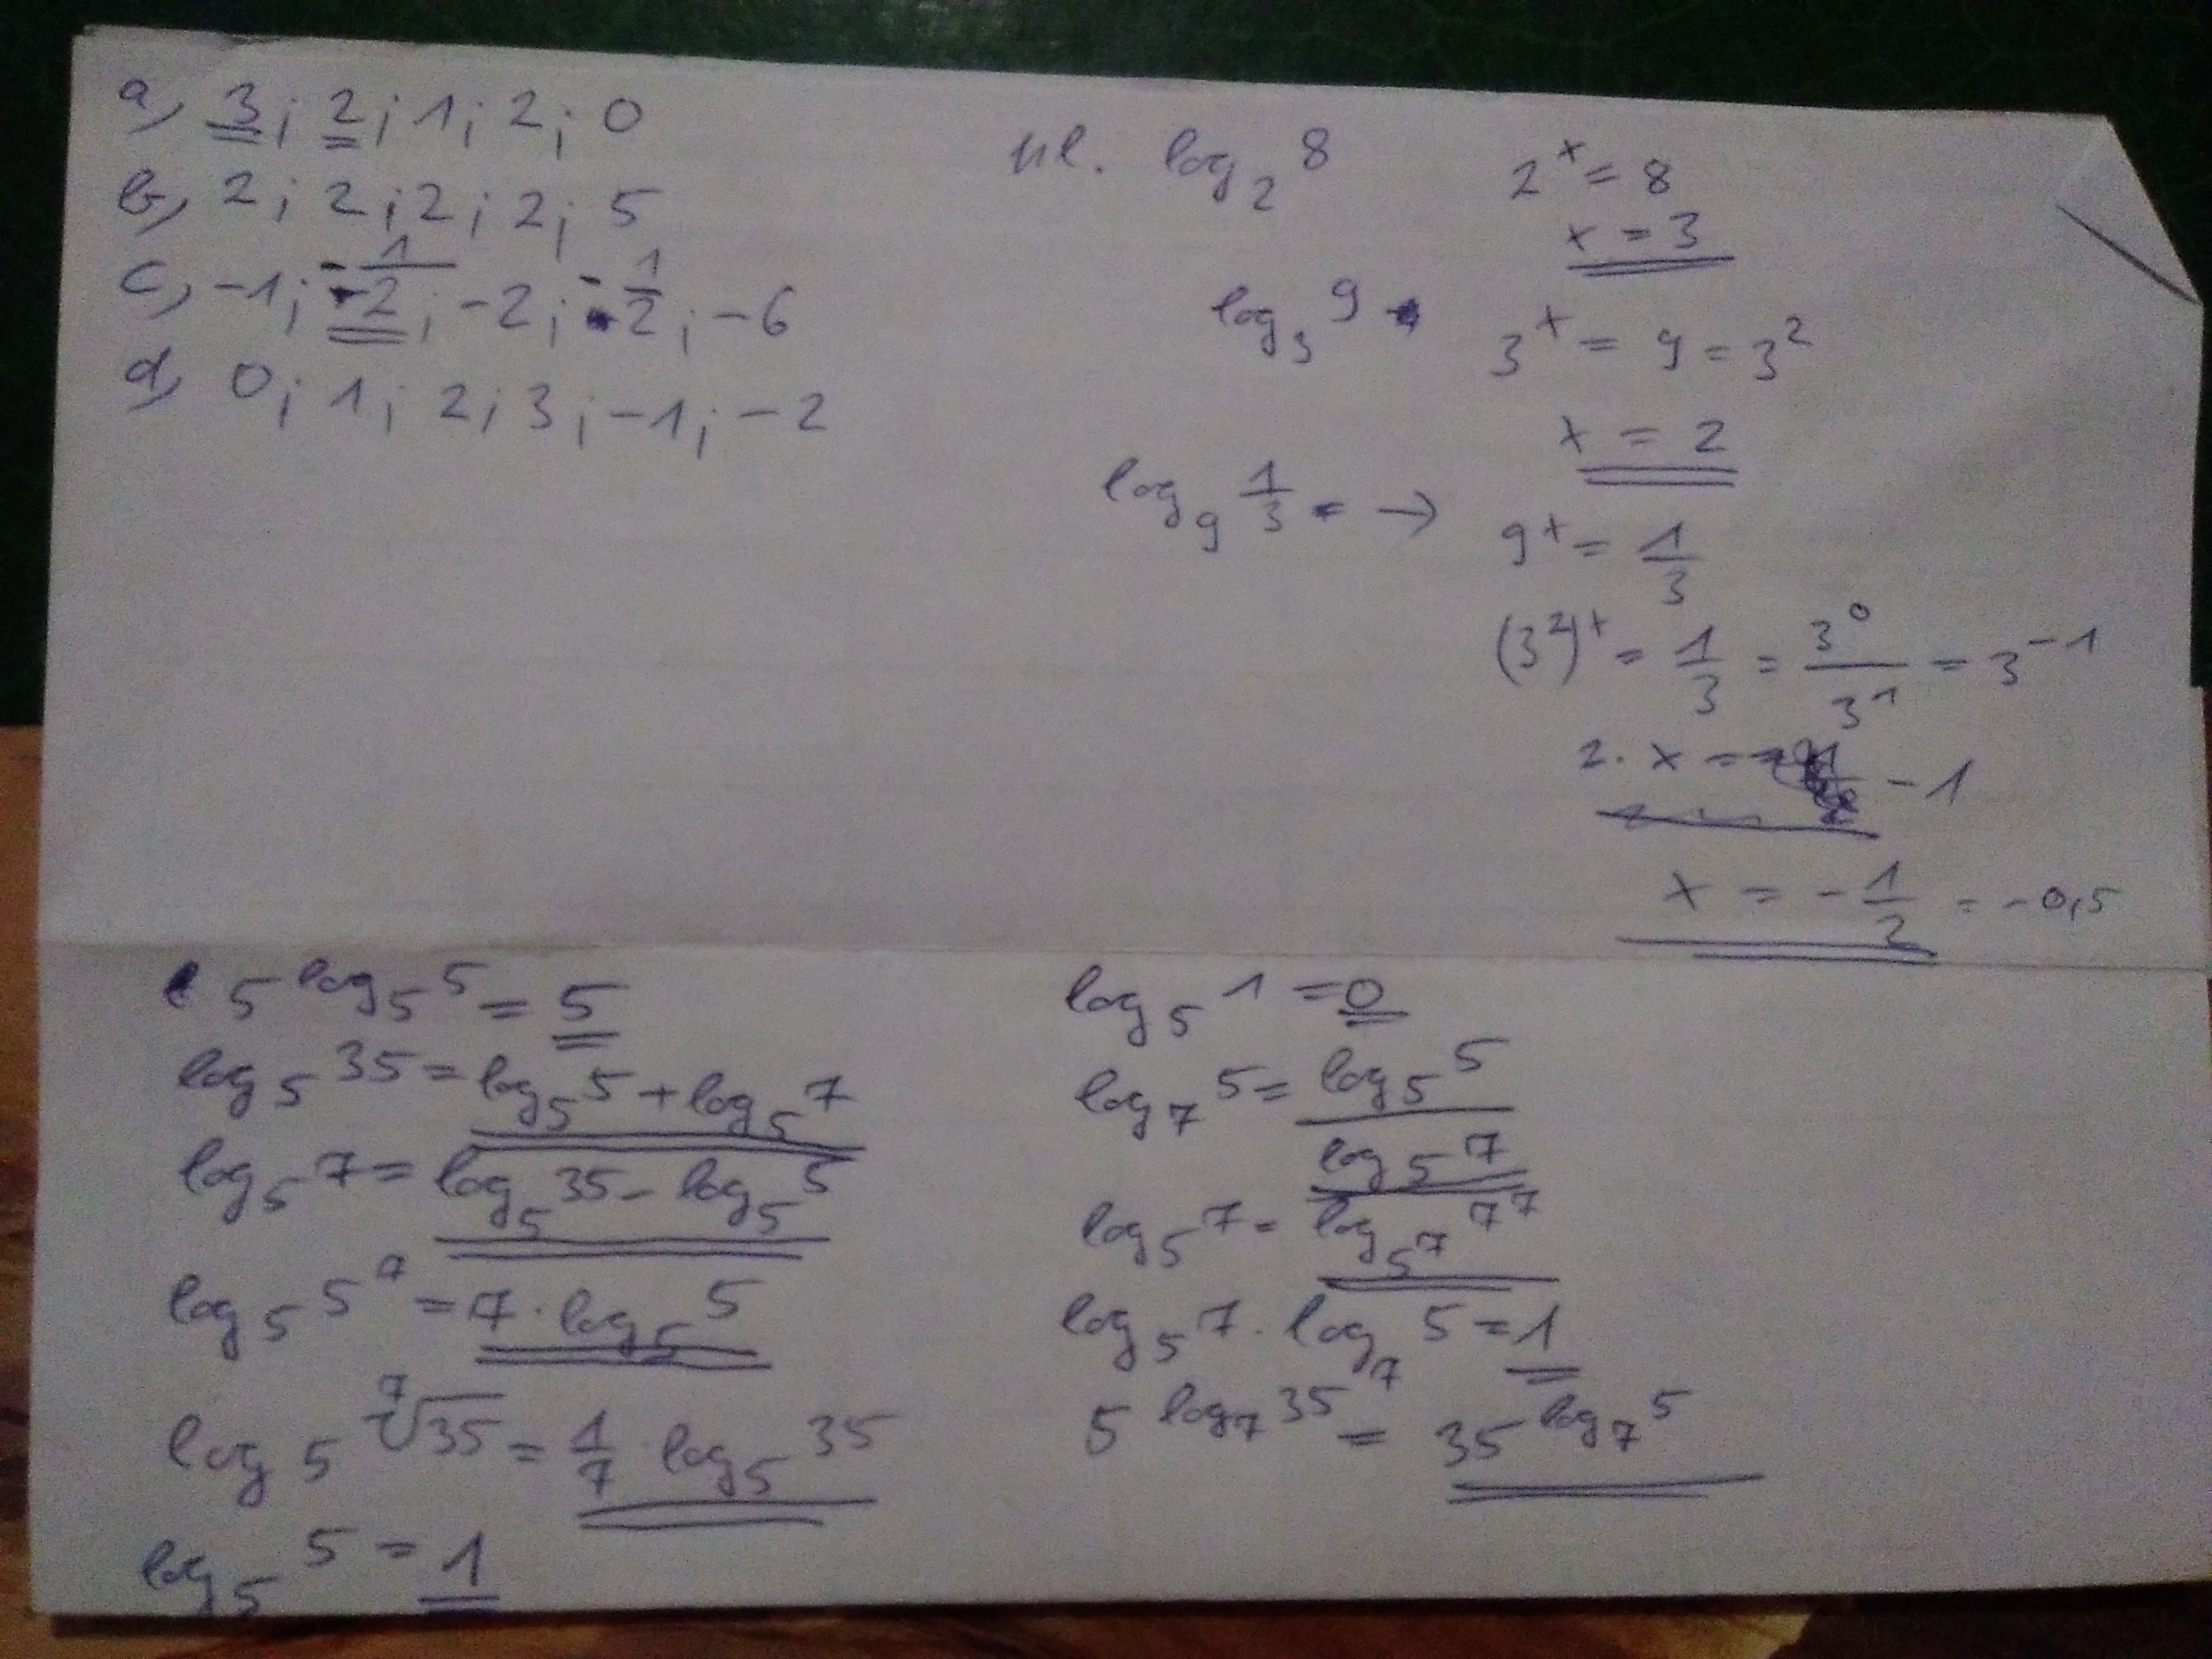 a, 3; 2; 1; 2; 0
b, 2; 2; 2; 2; 5
c, -1; -1/2; -2; -1/2; -6
d, 0; 1; 2; 3; -1; -2
pl. log₂ 8
2ˣ = 8
x = 3
log₃ 9
3ˣ = 9 = 3²
x = 2
log₉ 1/3 = →
9ˣ = 1/3
(3²)ˣ = 1/3 = 3⁰/3¹ = 3⁻¹
2 · x = -1
x = -1/2 = -0,5
5^(log₅ 5) = 5
log₅ 35 = log₅ 5 + log₅ 7
log₅ 7 = log₅ 35 - log₅ 5
log₅ 5⁷ = 7 · log₅ 5
log₅ ⁷√35 = 1/7 · log₅ 35
log₅ 5 = 1
log₅ 1 = 0
log₇ 5 = log₅ 5 / log₅ 7
log₅ 7 = log_(5⁷) 7⁷
log₅ 7 · log₇ 5 = 1
5^(log₇ 35) = 35^(log₇ 5)